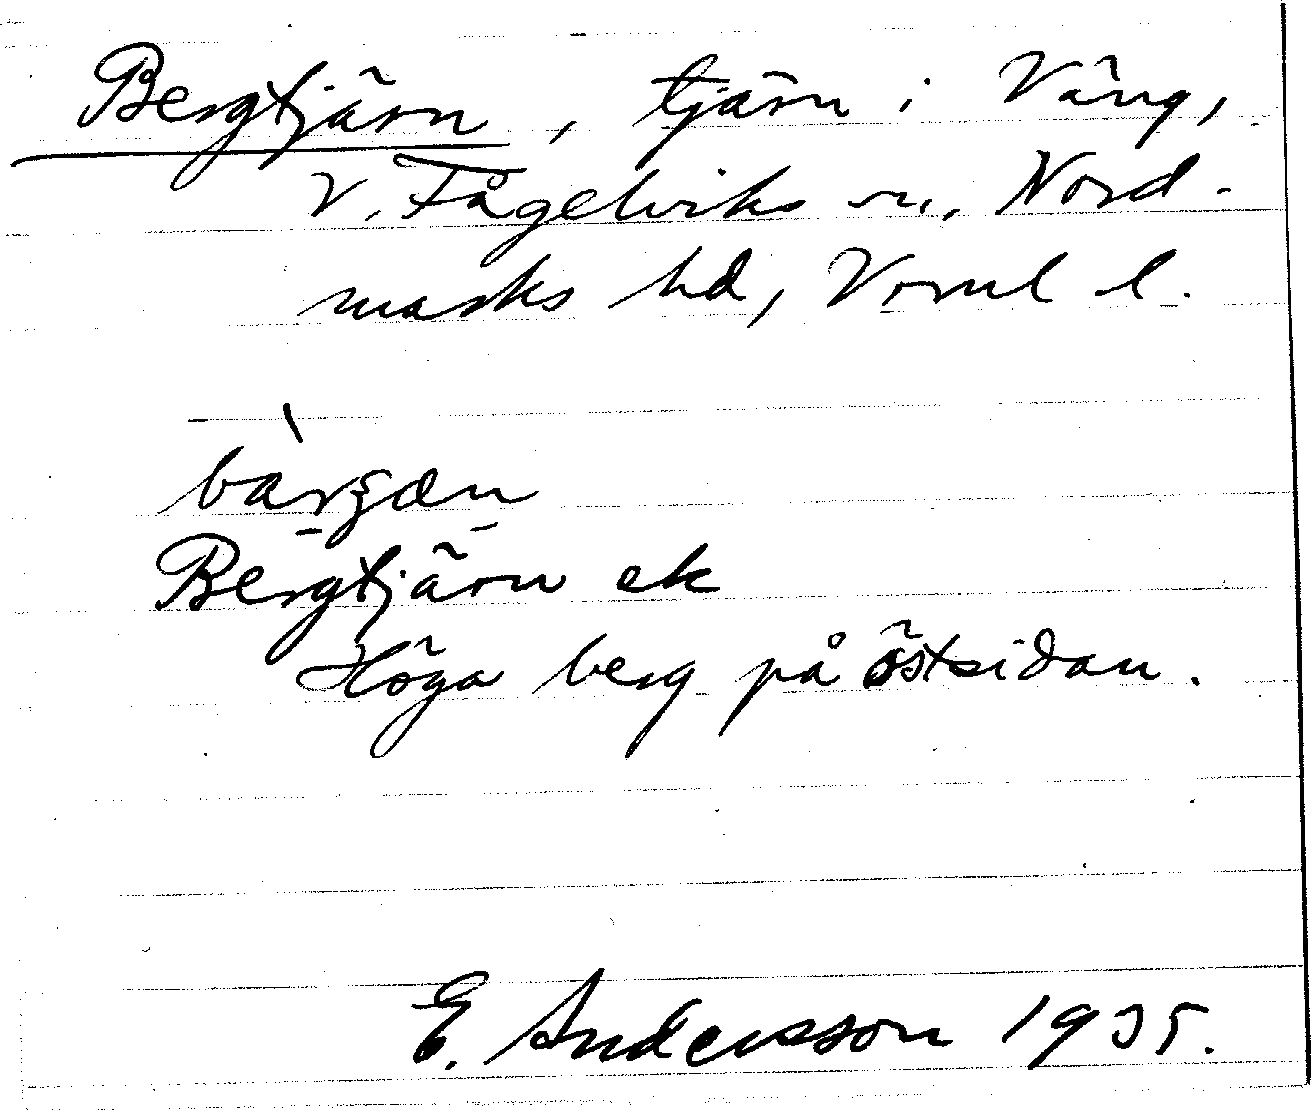 Bergtjärn, tjärn i Väng,
V. Fågelviks sn., Nord-
marks hd, Vrml l.
Bergtjärn ek
Höga berg på östsidan.
E. Andersson 1935.